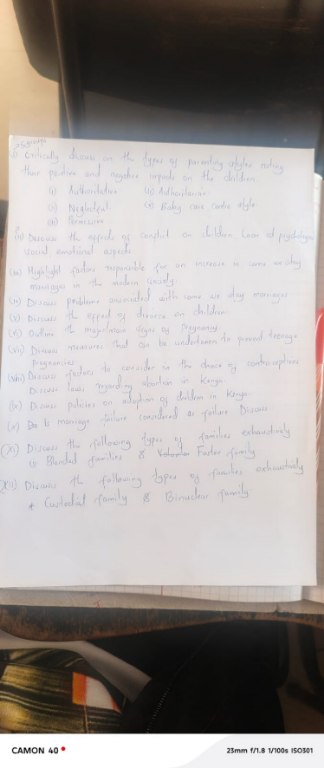 (i) Critically discuss on the types of parenting styles noting
their positive and negative aspects on the children
(i) Authoritative (ii) Authoritarian
(iii) Neglectful (iv) care centre style
(v) Permissive
(ii) Discuss the effects of conflict on children based at psychological
social emotional aspects
(iii) Highlight factors responsible for an increase in come we stay
marriages in the modern society.
(iv) Discuss problems associated with come we stay marriages
(v) Discuss the effect of divorce on children
(vi) Outline the signs of Pregnancy
(vii) Discuss measures that can be undertaken to prevent teenage
Pregnancies
(viii) Discuss factors to consider in the choice of contraceptives
Discuss laws regarding abortion in Kenya
(ix) Discuss policies on adoption of children in Kenya.
(x) Is marriage failure considered as failure Discuss
(xi) Discuss the following types of families exhaustively
Blended families & Foster family
(xii) Discuss the following types of families exhaustively
* Custodial family & Binuclear family
CAMON 40
23mm f/1.8 1/100s ISO301